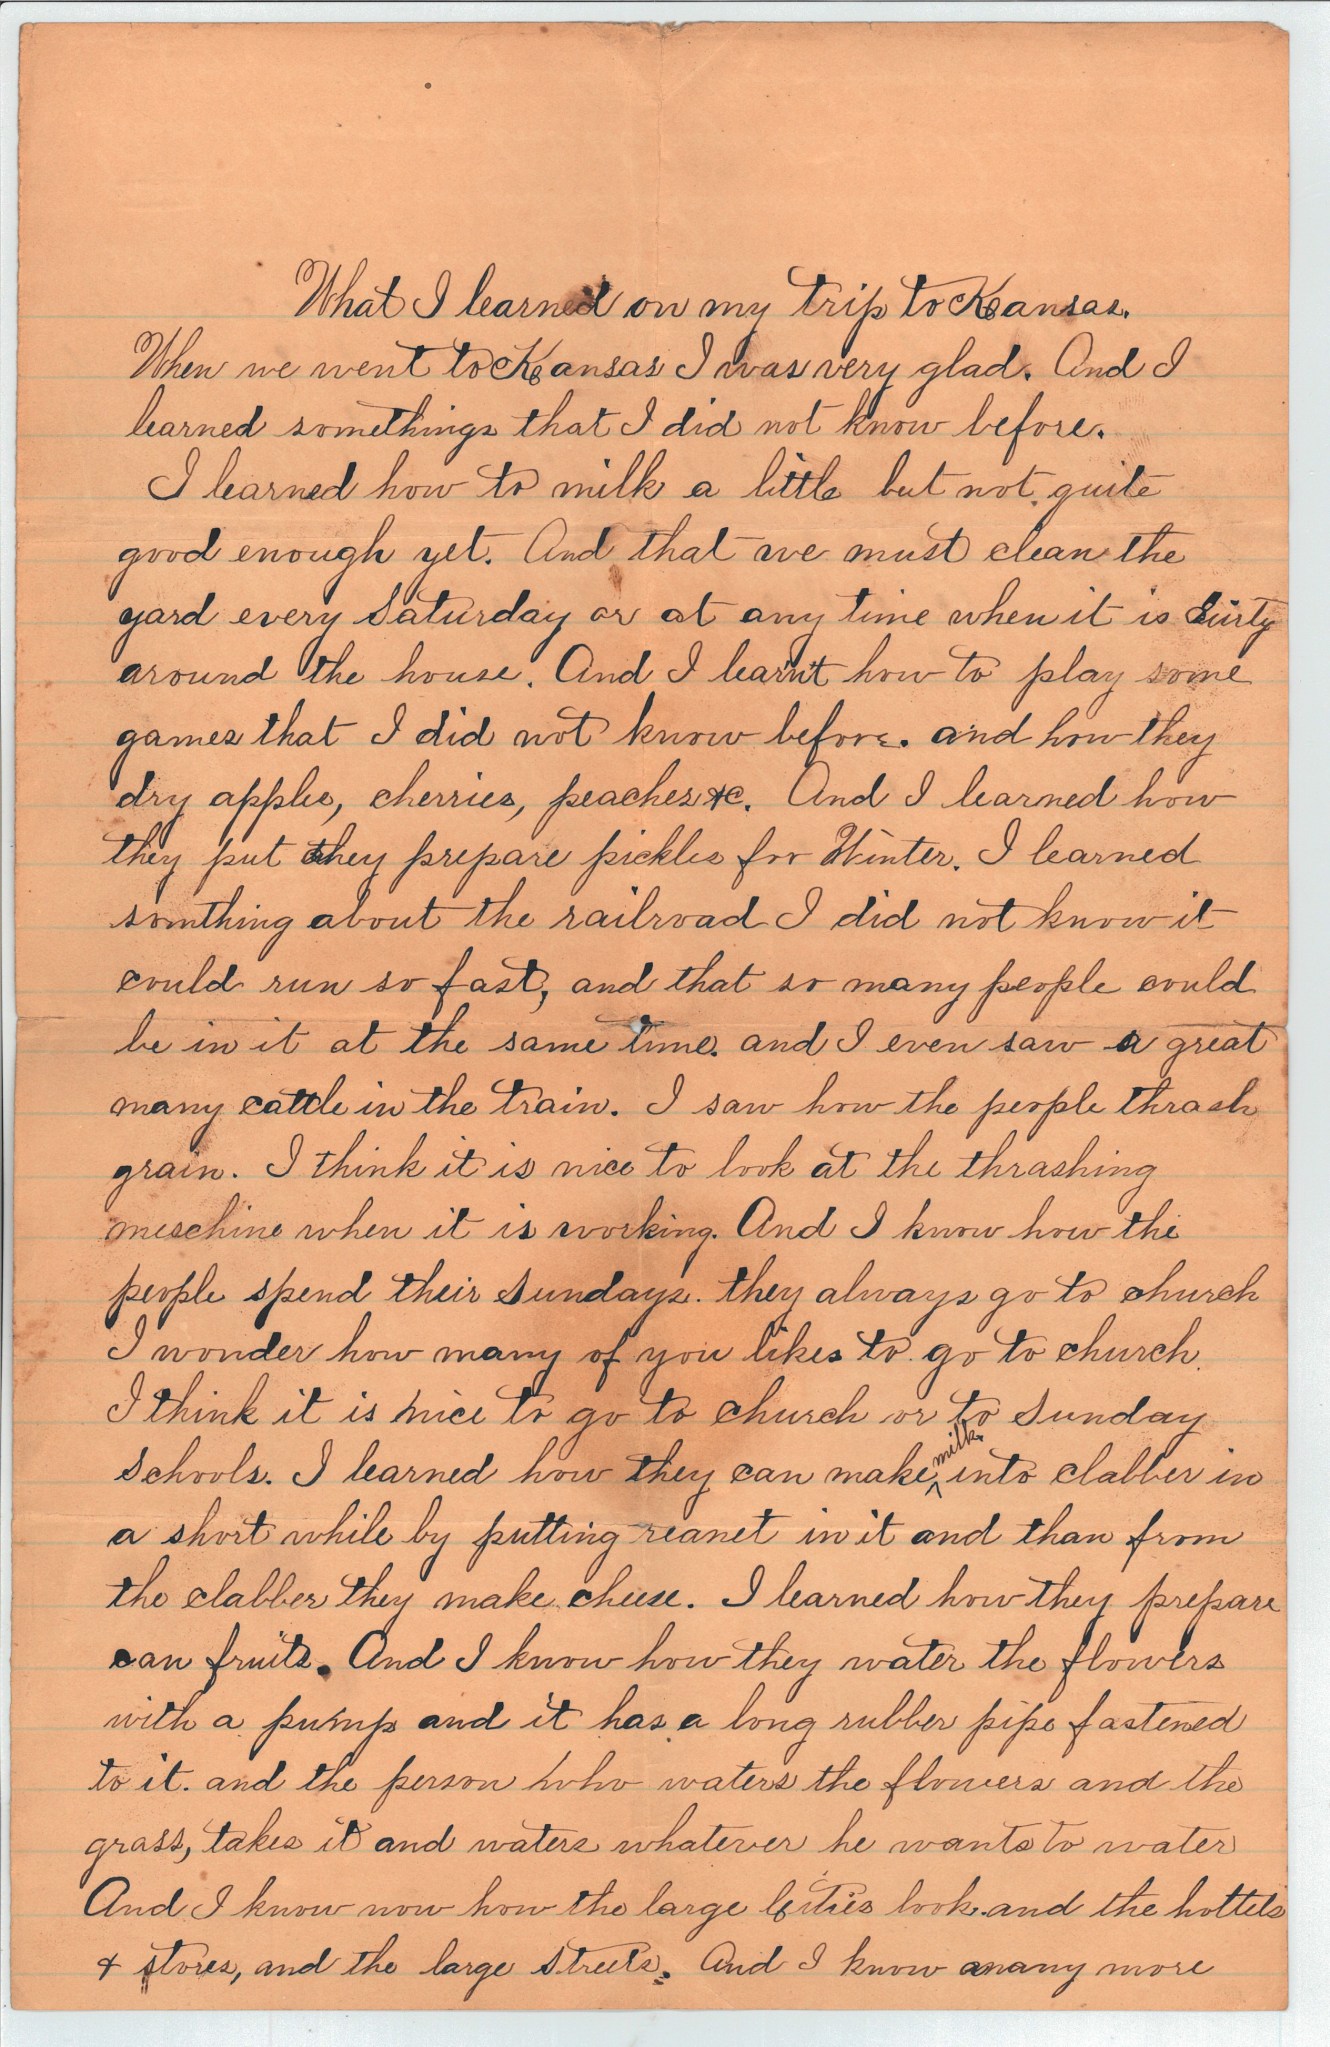 What I learned on my trip to Kansas.
When we went to Kansas I was very glad. And I
learned somethings that I did not know before.
I learned how to milk a little but not quite
good enough yet. And that we must clean the
yard every Saturday or at any time when it is dirty
around the house. And I learn't how to play some
games that I did not know before. and how they
dry apples, cherries, peaches &c. And I learned how
they put they prepare pickles for Winter. I learned
somthing about the railroad I did not know it
could run so fast, and that so many people could
be in it at the same time. and I even saw a great
many cattle in the train. I saw how the people thrash
grain. I think it is nice to look at the thrashing
meschine when it is working. And I know how the
people spend their Sundays. they always go to church
I wonder how many of you likes to go to church.
I think it is nice to go to church or to Sunday
Schools. I learned how they can make milk into clabber in
a short while by putting reanet in it and than from
the clabber they make cheese. I learned how they prepare
can fruits. And I know how they water the flowers
with a pump and it has a long rubber pipe fastened
to it. and the person who waters the flowers and the
grass, takes it and waters whatever he wants to water
And I know now how the large cities look. and the hottels
& stores, and the large streets. And I know many more